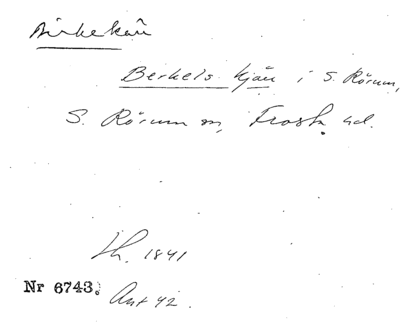 Birkekär
Berkels kjär i S. Rörum,
S. Rörum sn, Frosta hd.
Lh. 1841
Nr 6743. Ant 42.